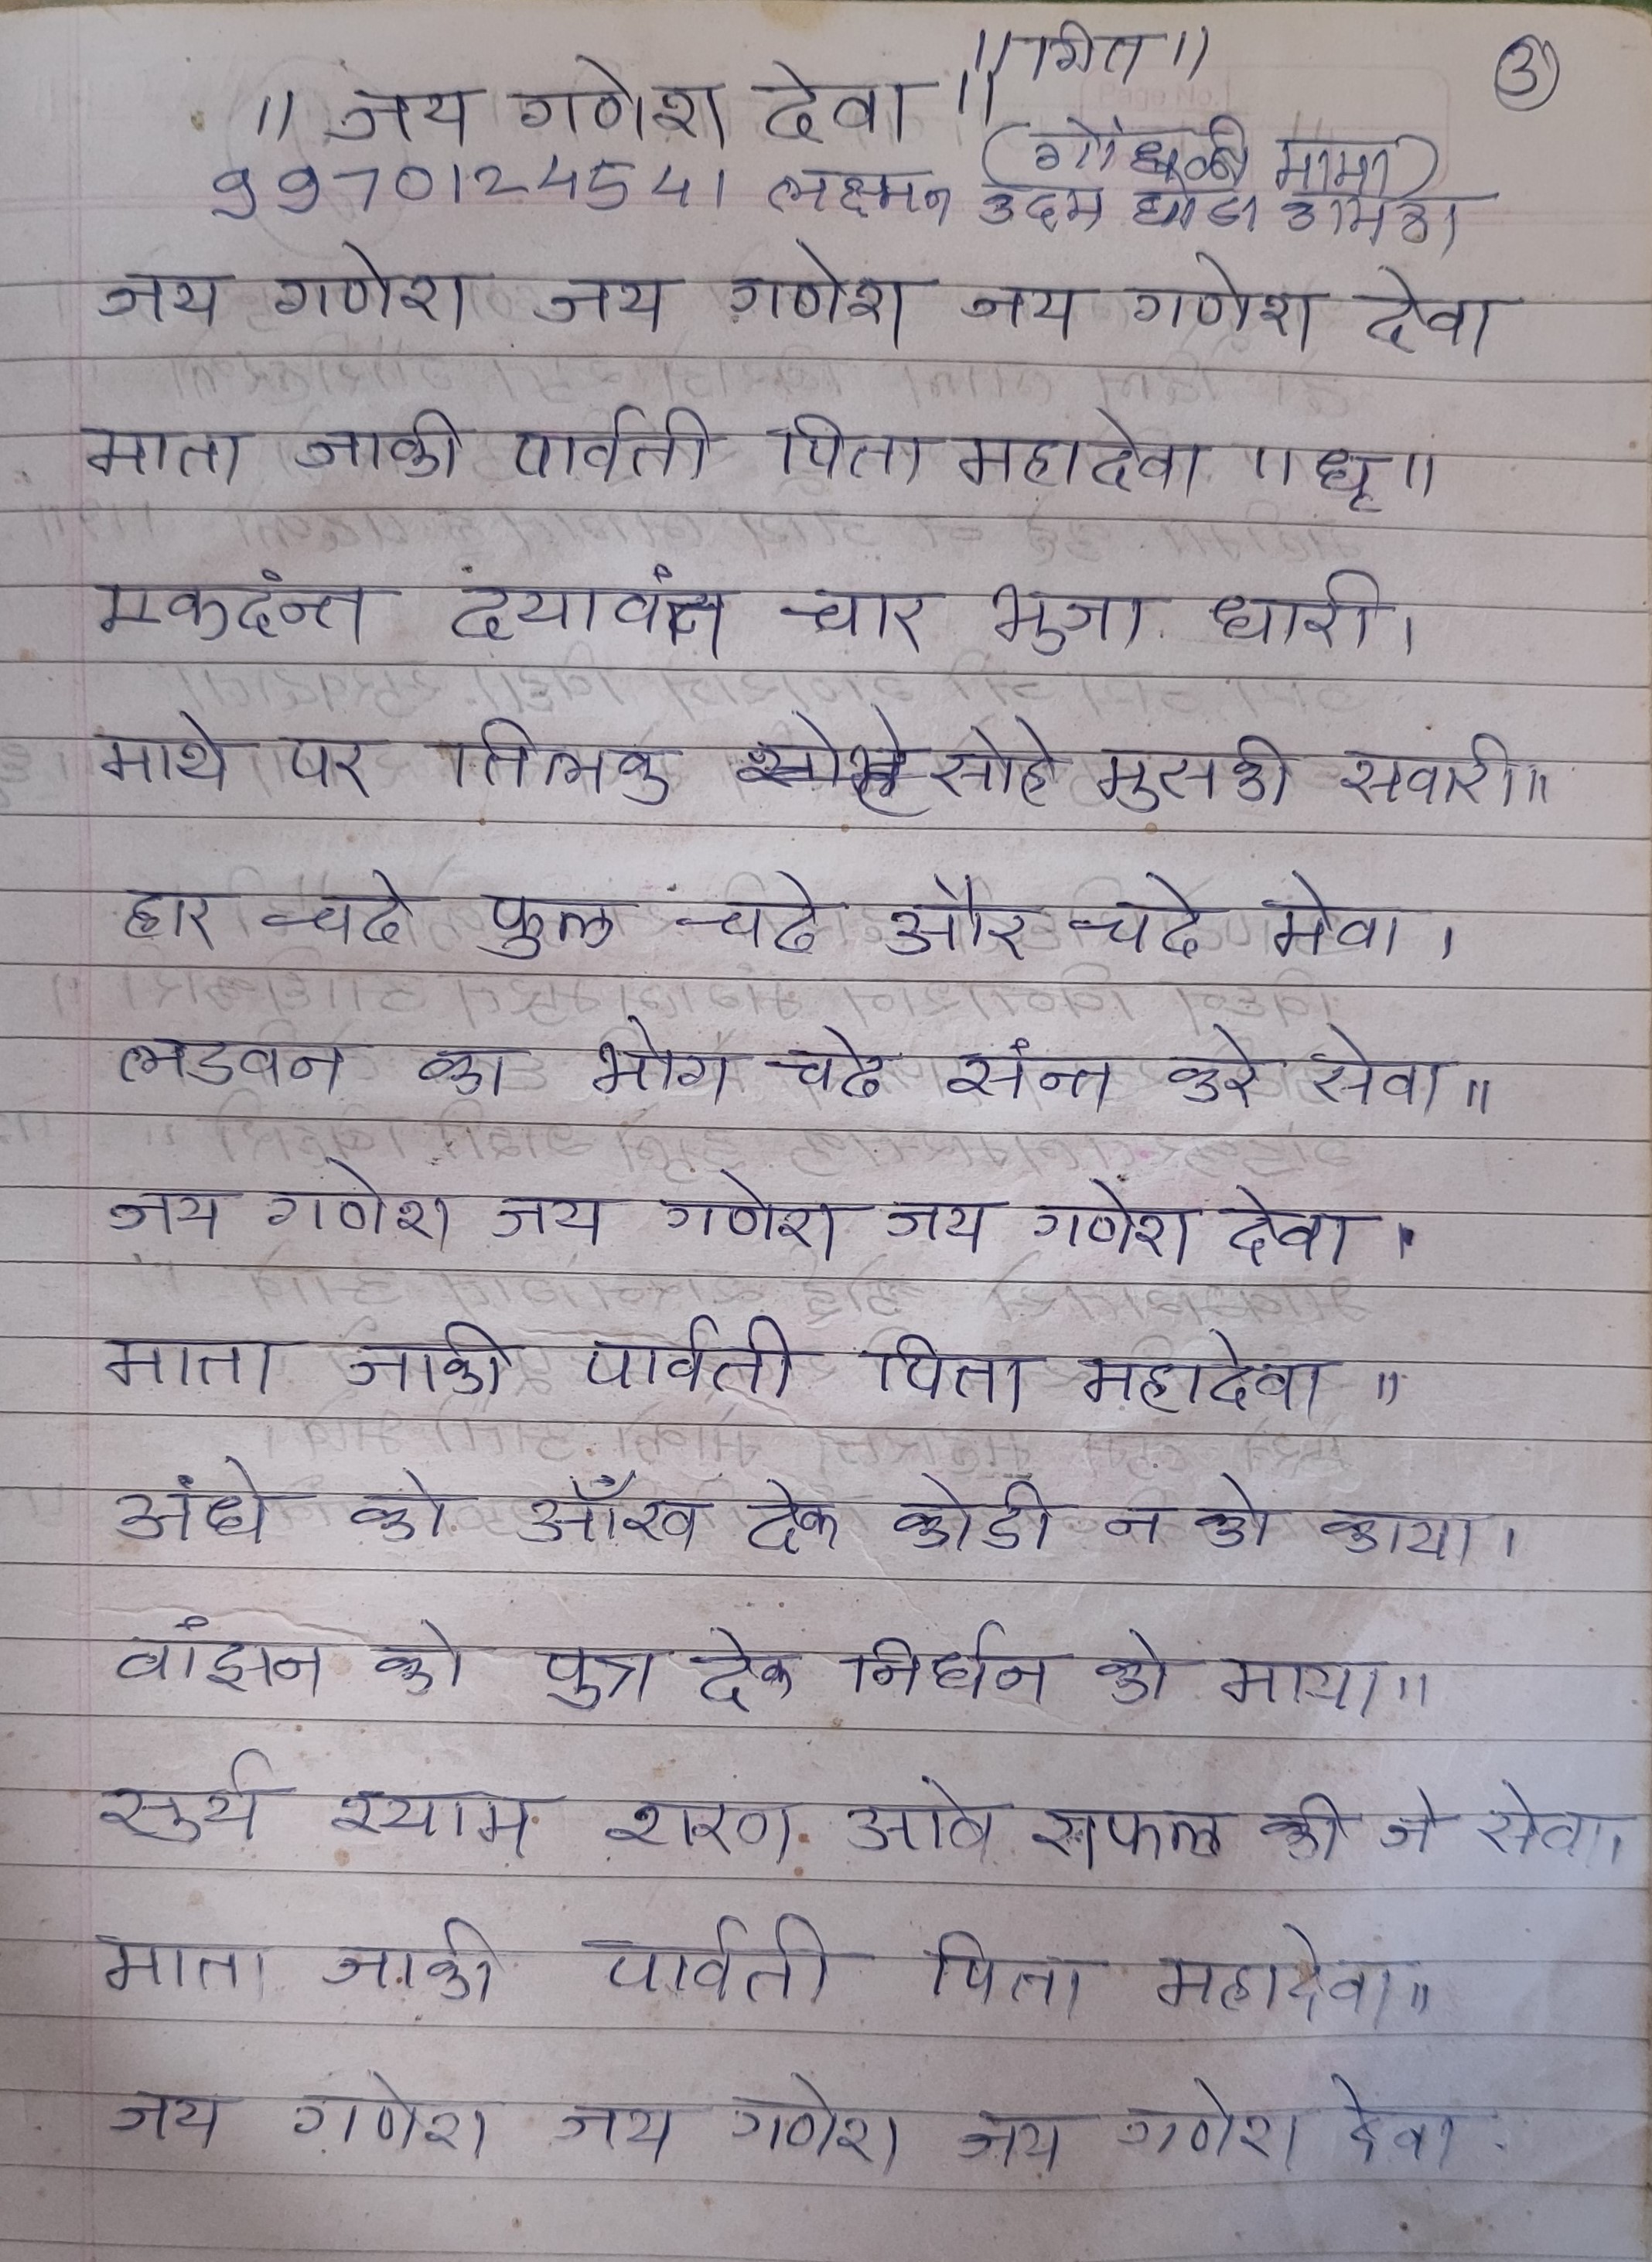 ॥ गित ॥
३
॥ जय गणेश देवा ॥
(गोंधळी मामा)
9970124541 लक्ष्मन उदम
जय गणेश जय गणेश जय गणेश देवा
माता जाकी पार्वती पिता महादेवा ॥धृ॥
एकदंन्त दंयावंत चार भुजा धारी।
माथे पर तिलक सोहे मुसकी सवारी॥
हार चढे फुल चढे और चढे मेवा।
लडवन का भोग चढे संन्त करे सेवा॥
जय गणेश जय गणेश जय गणेश देवा।
माता जाकी पार्वती पिता महादेवा॥
अंधे को आँख देक कोडी न को काया।
वांझन को पुत्र देक निर्धन को माया॥
सुर्य श्याम शरण आवे सफल की जे सेवा।
माता जाकी पार्वती पिता महादेवा॥
जय गणेश जय गणेश जय गणेश देवा